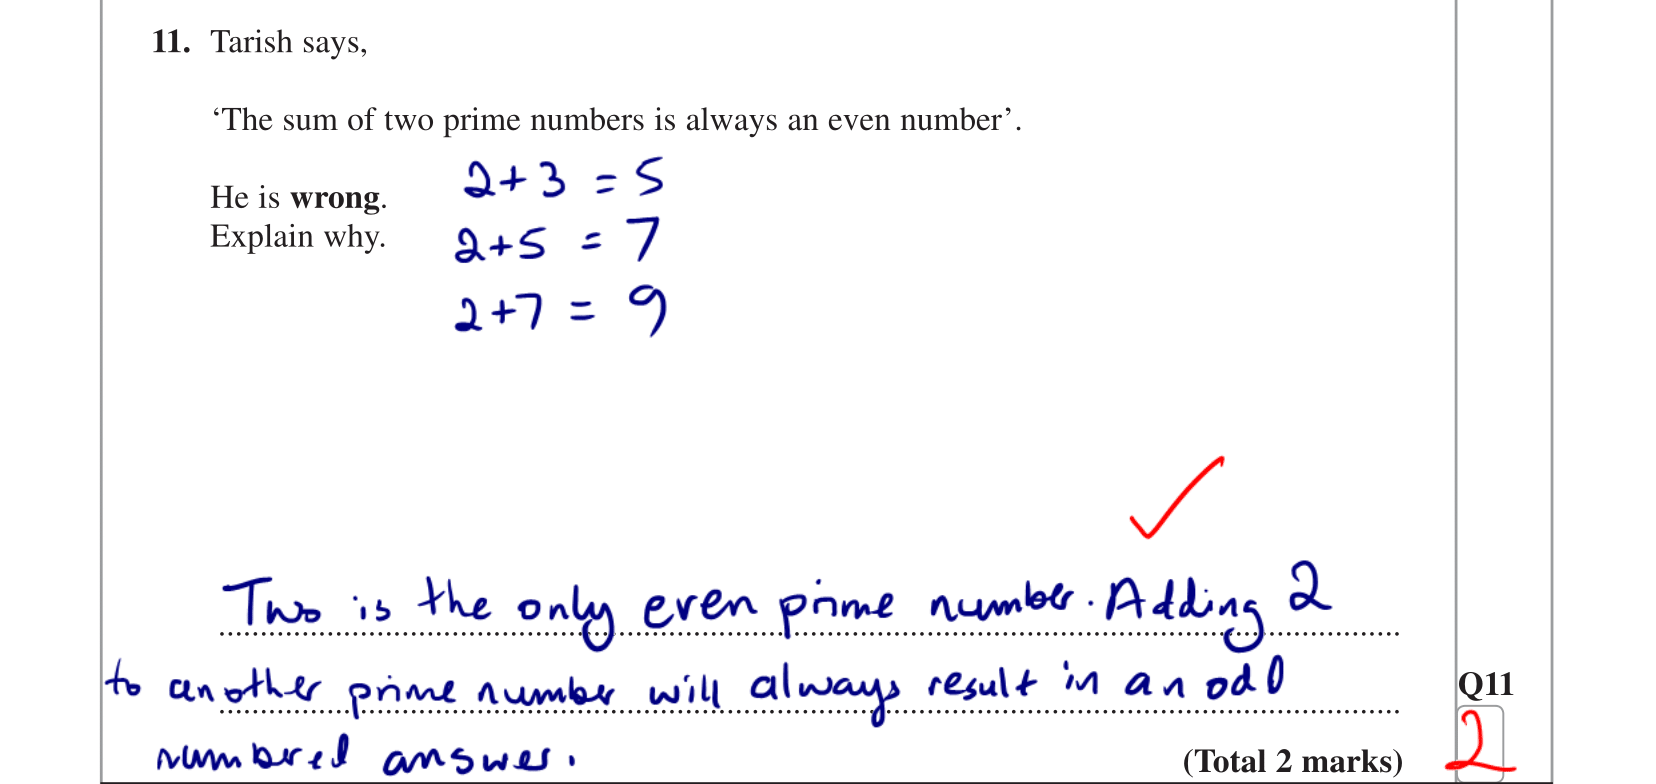 11. Tarish says,
‘The sum of two prime numbers is always an even number’.
2+3 = 5
He is wrong.
Explain why.
2+5 = 7
2+7 = 9
Two is the only even prime number. Adding 2
to another prime number will always result in an odd
numbered answer.
Q11
(Total 2 marks)
2